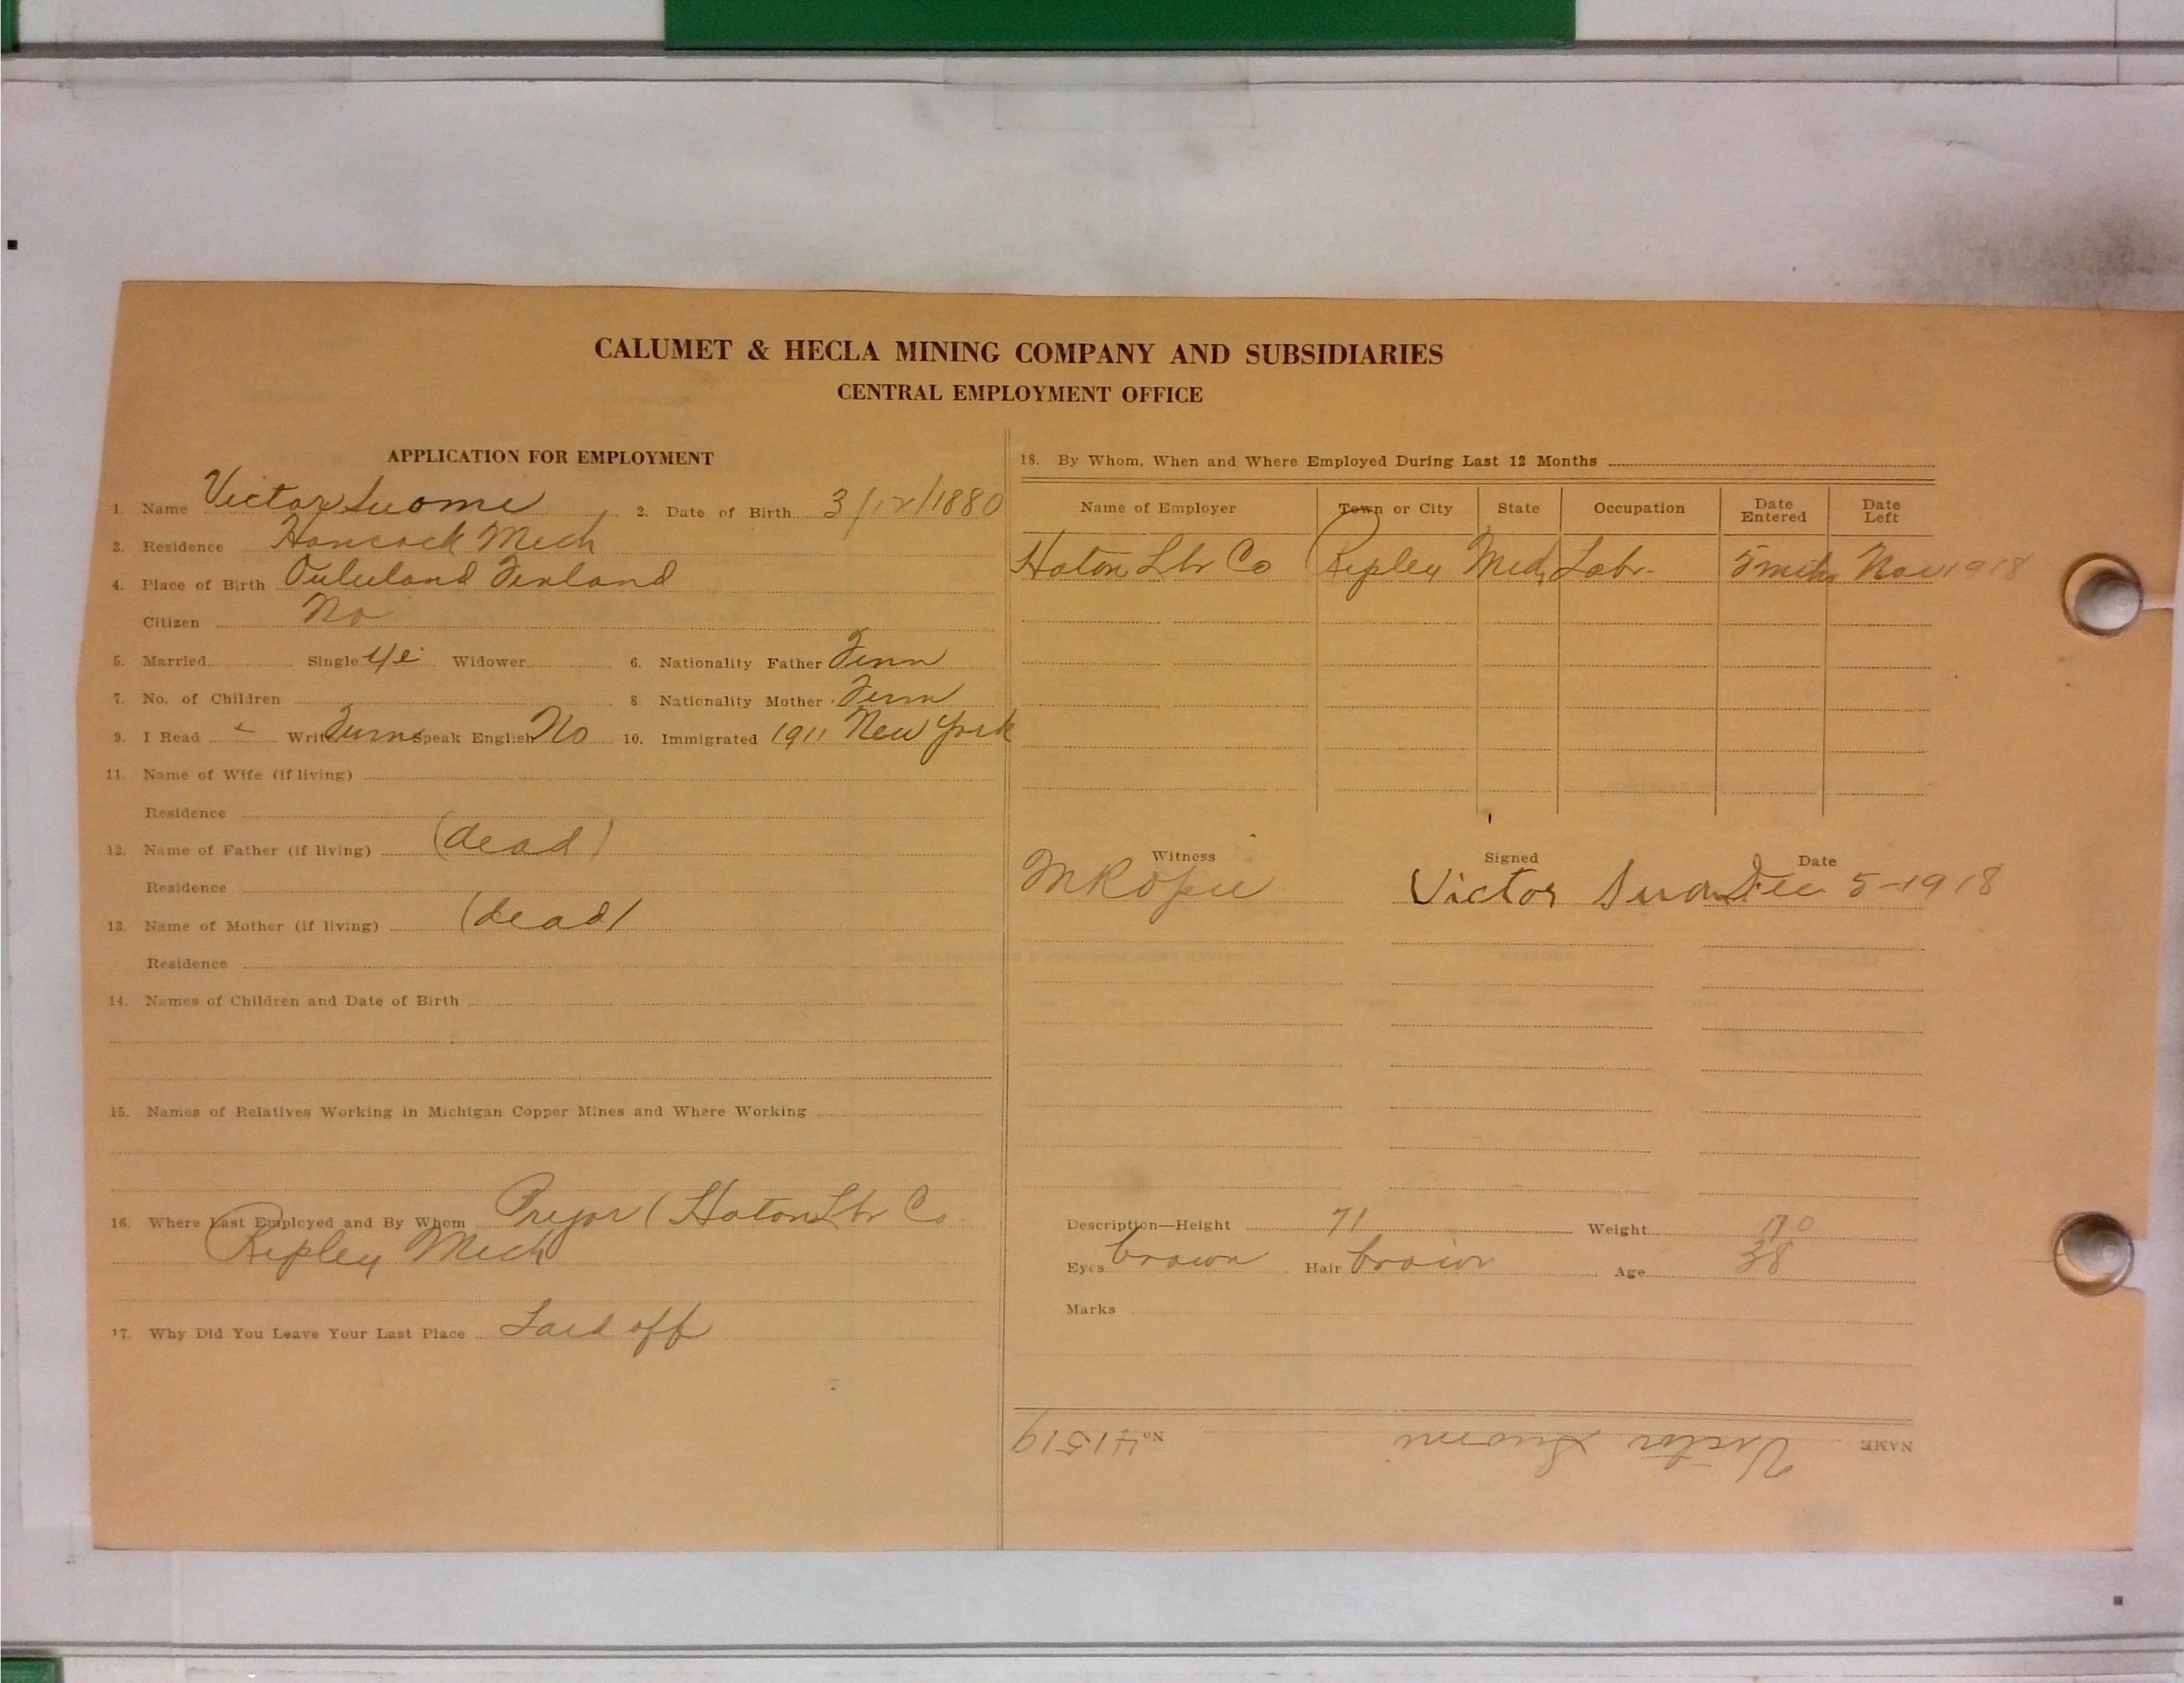 CALUMET & HECLA MINING COMPANY AND SUBSIDIARIES
CENTRAL EMPLOYMENT OFFICE
APPLICATION FOR EMPLOYMENT
1. Name Victor Suomi 2. Date of Birth 3/12/1880
3. Residence Hancock Mich
4. Place of Birth Oululand Finland
Citizen No
5. Married Single Widower 6. Nationality Father Finn
7. No. of Children 8 Nationality Mother Finn
9. I Read Write Finns Speak English No 10. Immigrated 1911 New York
11. Name of Wife (if living)
Residence
12. Name of Father (if living) (dead)
Residence
13. Name of Mother (if living) (dead)
Residence
14. Names of Children and Date of Birth
15. Names of Relatives Working in Michigan Copper Mines and Where Working
16. Where Last Employed and By Whom Pryor (Hoton Lbr Co
Ripley Mich
17. Why Did You Leave Your Last Place Laid off
18. By Whom, When and Where Employed During Last 12 Months
Name of Employer Town or City State Occupation Date Entered Date Left
Hoton Lbr Co Ripley Mich Labr. 5 mths Nov 1918
Witness Signed Date
Victor Dec 5-1918
Description—Height 71 Weight 170
Eyes brown Hair brown Age 38
Marks
NAME Victor Suomi No 41519